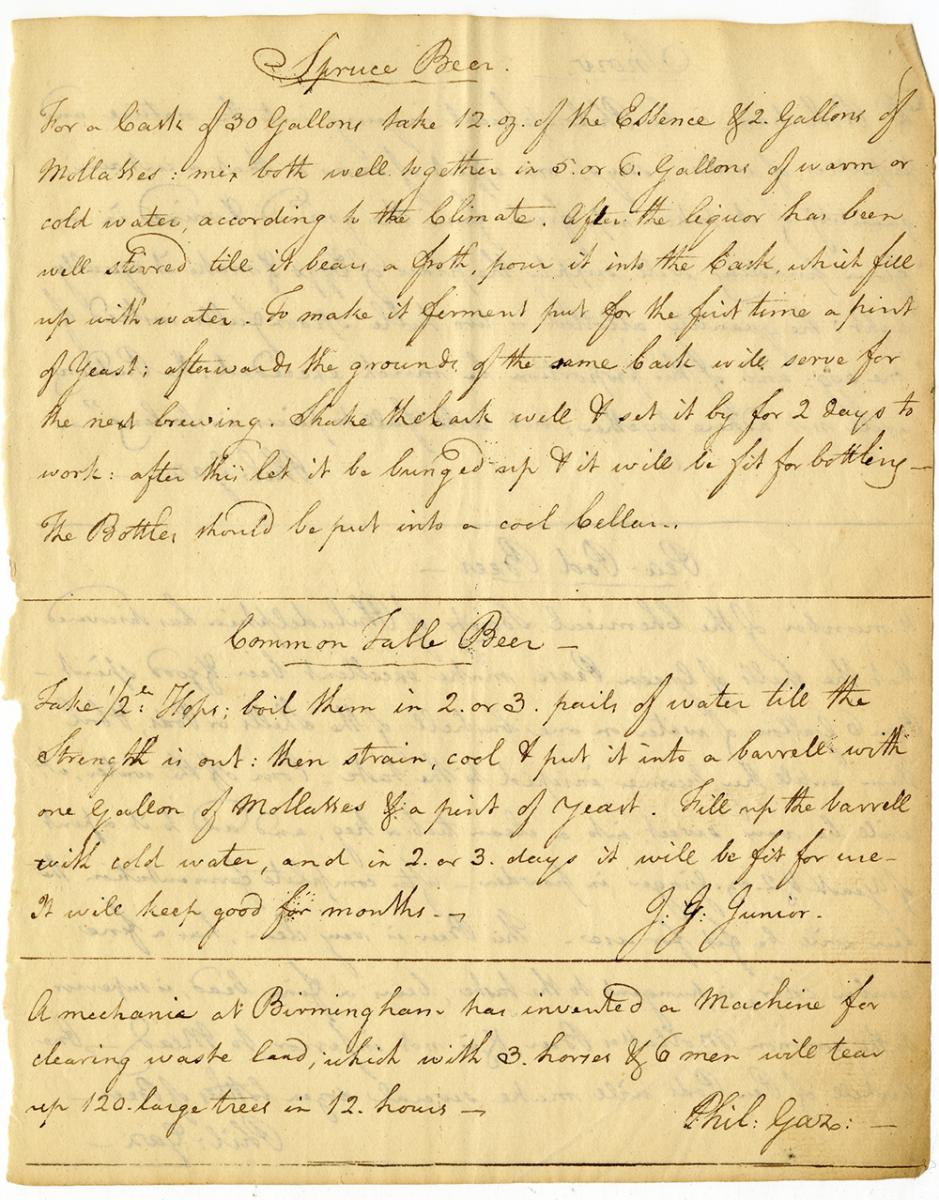 Spruce Beer.
For a Cask of 30 Gallons take 12. oz. of the Essence & 2. Gallons of
Mollasses: mix both well together in 5. or 6. Gallons of warm or
cold water, according to the Climate. After the liquor has been
well stirred till it bears a froth, pour it into the Cask, which fill
up with water. To make it ferment put for the first time a pint
of Yeast; afterwards the grounds of the same Cask will serve for
the next brewing. Shake the Cask well & set it by for 2 days to
work: after this let it be bunged up & it will be fit for bottling —
The Bottles should be put into a cool Cellar.
Common Table Beer —
Take 1/2 Hops; boil them in 2. or 3. pails of water till the
Strength is out: then strain, cool & put it into a barrell with
one Gallon of Mollasses & a pint of yeast. Fill up the barrell
with cold water, and in 2. or 3. days it will be fit for use —
It will keep good for months. —
J. G. Junior.
A mechanic at Birmingham has invented a Machine for
clearing waste land, which with 3. horses & 6 men will tear
up 120. large trees in 12. hours —
Phil: Gaz: —